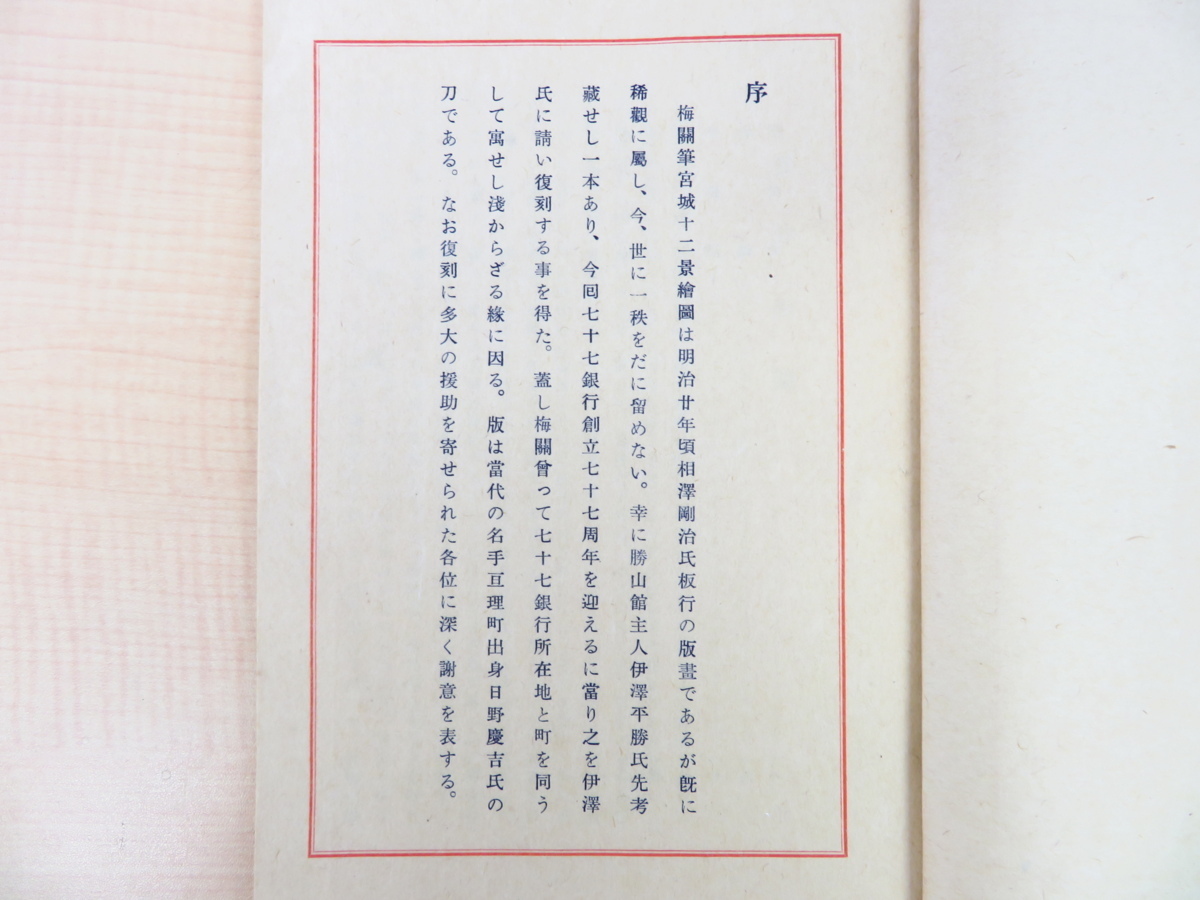 序
梅關筆宮城十二景繪圖は明治廿年頃相澤剛治氏板行の版畫であるが旣に
稀觀に屬し、今、世に一秩をだに留めない。幸に勝山館主人伊澤平勝氏先考
藏せし一本あり、今囘七十七銀行創立七十七周年を迎えるに當り之を伊澤
氏に請い復刻する事を得た。蓋し梅關曾って七十七銀行所在地と町を同う
して寓せし淺からざる緣に因る。版は當代の名手亘理町出身日野慶吉氏の
刀である。なお復刻に多大の援助を寄せられた各位に深く謝意を表する。